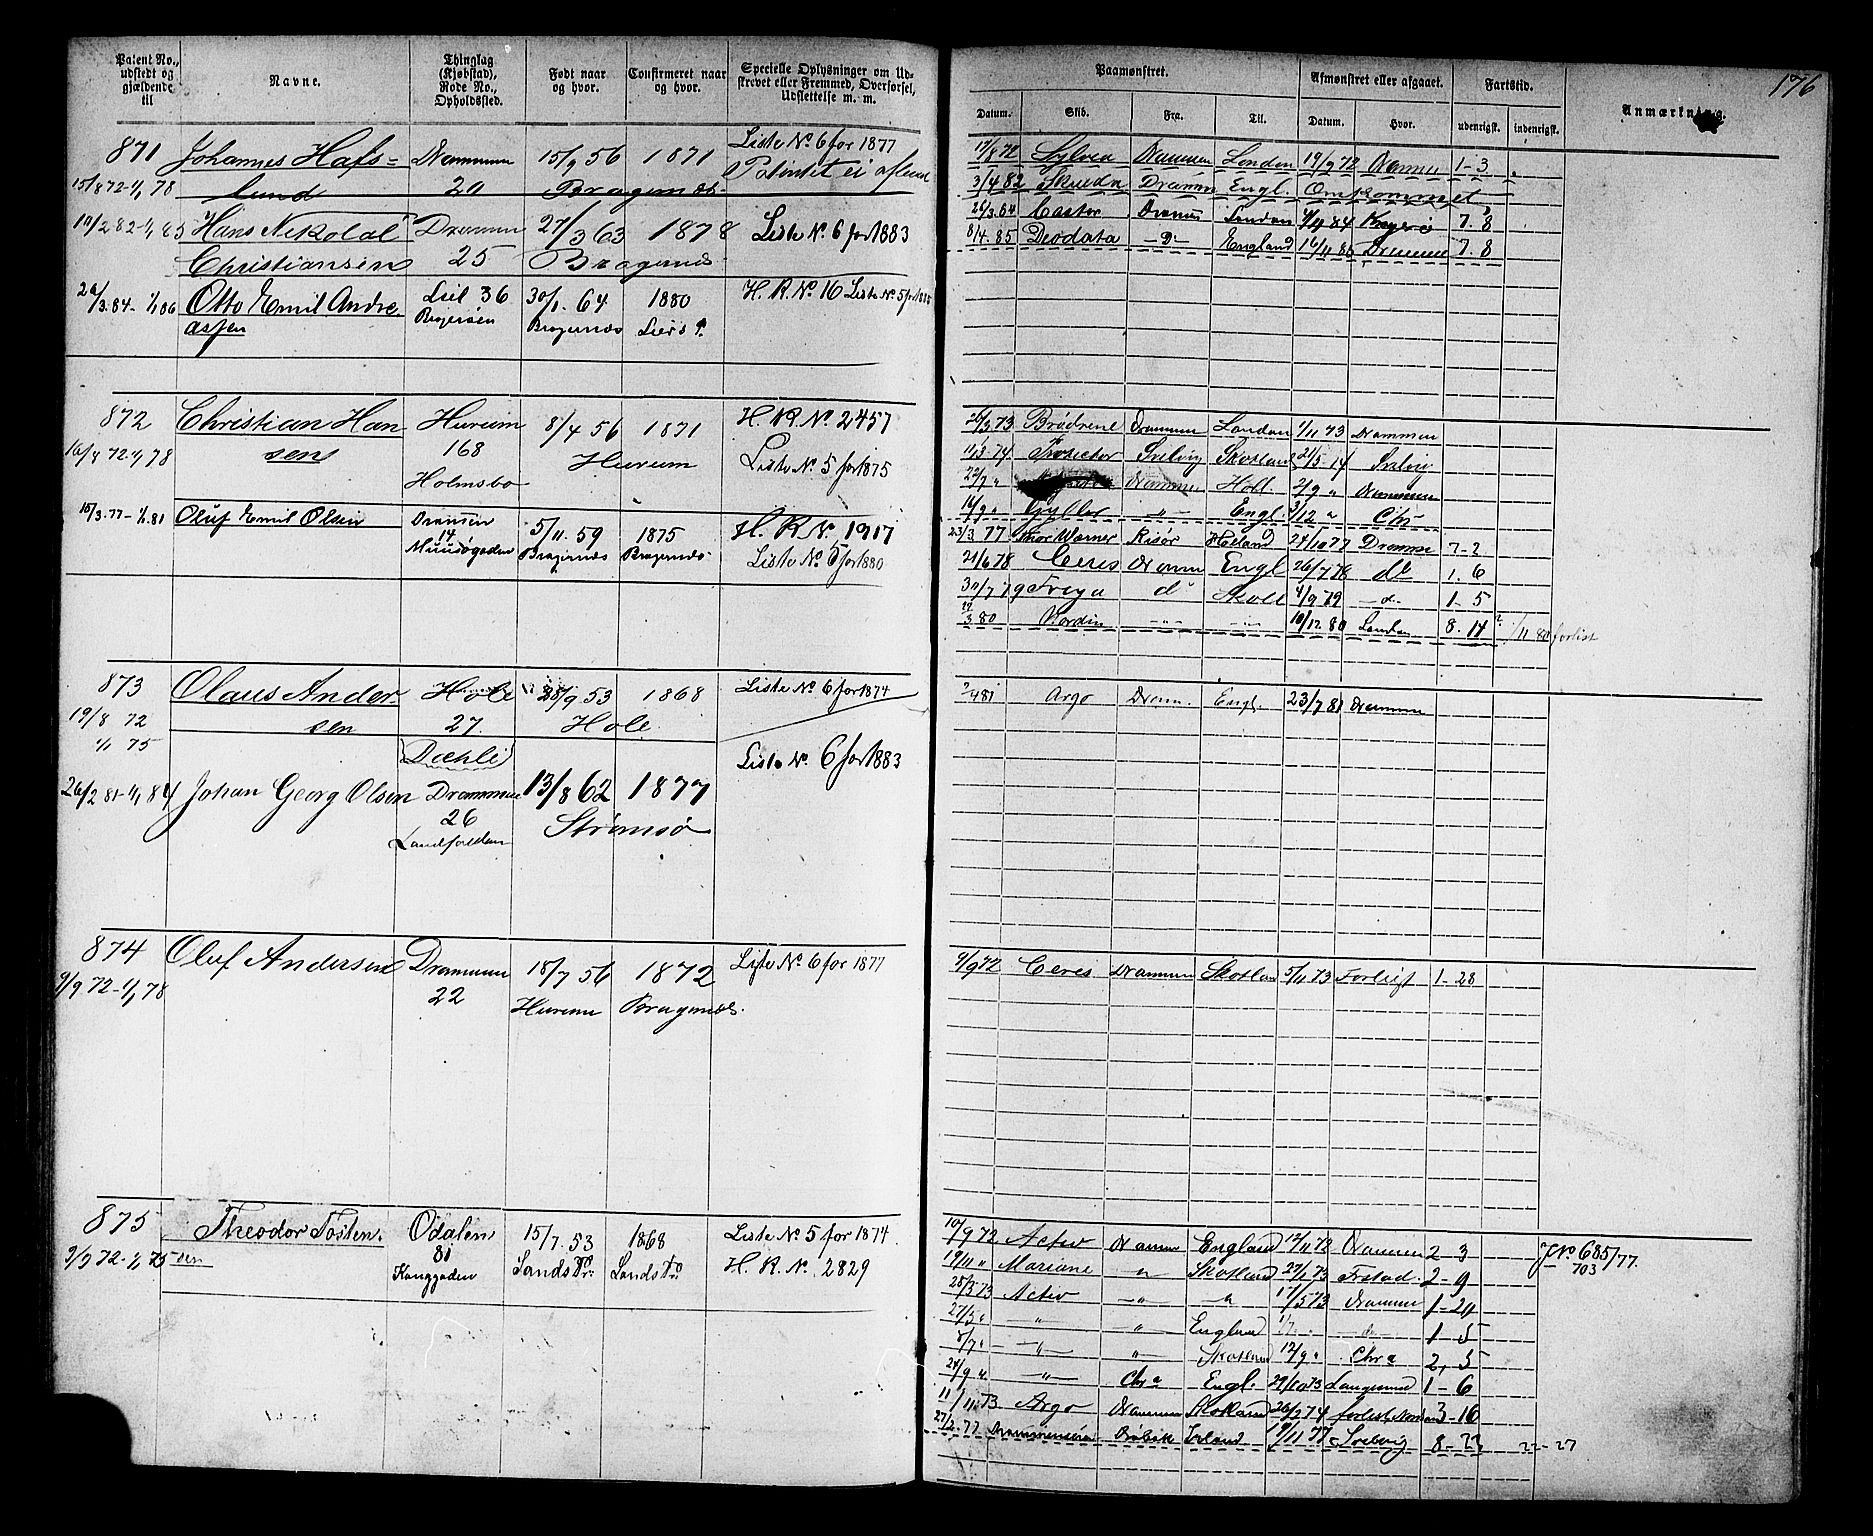 176
Patent No., udstedt og gjældende til
Navne.
Thinglag (Kjøbstad), Rode No., Opholdssted.
Født naar og hvor.
Confirmeret naar og hvor.
Specielle Oplysninger om Udskrevet eller Fremmed, Overførsel, Udslettelse m. m.
Paamønstret.
Afmønstret eller afgaaet.
Fartstid.
Anmærkning.
Datum. Skib. Fra. Til. Datum. Hvor. udenrigsk. indenrigsk.
871 Johannes Hafs= Drammen 15/9 56 1871 Liste No 6 for 1877
15/8 72-1/1 78 lund 20 Bragernæs
Patentet ei
10/2 82-1/1 85 Hans Nikolai Drammen 27/3 63 1878 Liste No 6 for 1883
Christiansen 25 Bragernes
26/3.84-1/1 86 Otto Emil Andre Lier 36 30/1. 64 1880 H. R. No 16 Liste No 5 for
assen Bragernæs Liers
17/8 72 Sylvia Drammen London 19/9 72 Drammen 1-3
3/4 82 Skreda Dramm Engl. Omkommet
26/3.84 Castor Dramm London 4/11 84 Kragerø 7. 8
8/4. 85 Deodata -D- England 16/11 85 Drammen 7. 8
872 Christian Han Hurum 8/4 56 1871 H. R. No 2457
16/8 72-1/1 78 sen 168 Hurum Liste No 5 for 1875
Holmsbo
15/3.77-1/1.81 Oluf Emil Olsen Drammen 5/11. 59 1875 H. R. No 1917
14 Bragernæs Bragernæs Liste No 5 for 1880
20/3 73 Brødrene Drammen London 1/11 73 Drammen
11/3 74 Protector Svelvig Skotland 21/5 74 Svelvig
22/7 " Drammen Holl. 2/9 " Drammen
14/9 " Gyller -"- Engl. 3/12 " Chr
23/3 77 Thor Werner Risør Holland 24/10 77 Dramme 7-2
21/6 78 Ceres Dramm Engl 26/7 78 do 1. 6
30/7 79 Freya d Skotl 4/9 79 -d- 1-5
22/3 80 Nordin -"- -"- 10/12 80 London 8. 14 /11 80 forlist
873 Olaus Ander- Hole 28/9 53 1868 Liste No 6 for 1874
19/8 72 sen 27. Hole
1/1 75 Dæhli Liste No. 6 for 1883
26/2 81-1/1 84 Johan Georg Olsen Drammen 13/8 62 1877
26 Strømsø
Landfalden
2/4 81 Argo Dram. Engl. 23/7 81 Drammen
874 Oluf Andersen Drammen 18/7 56 1872 Liste No 6 for 1877
9/9 72-1/1 78 22 Hurum Bragernæs.
9/9 72 Ceres Drammen Skotlan 5/11 73 Forliist 1-28
875 Theodor Tosten. Odalen 15/7. 53 1868 Liste No 5 for 1874
9/9 72-1/1 75 sen 81 Sands Pr: Sands Pr: H. R. No. 2829
Konggaden
10/9 72 Activ Drammen England 12/11 72 Drammen 2-3 J No 685/77.
703
19/11 " Mariane " Skotland 27/1 73 Frstad. 2-9
28/3 73 Activ -"- -"- 17/5 73 Drammen 1-20
27/5 " -"- " England 1/7. -do- 1-5
8/7 " -"- -"- Skotland 12/9 " Chr a 2, 5
24/9 " -"- Chr a Engl. 29/10 73 Langesund 1-6
11/11 73 Argo Drammen Skotland 26/2 74 forlist 3-16
27/2 77 Drammensern Drøbak Irland 19/11 77 Svelvig 8-22 22-27